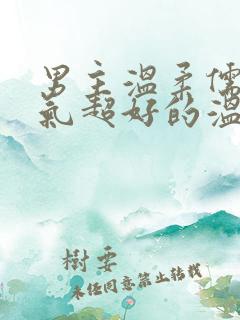 男主溫柔儒
氣超好的溫
樹要
未任同意禁止转载